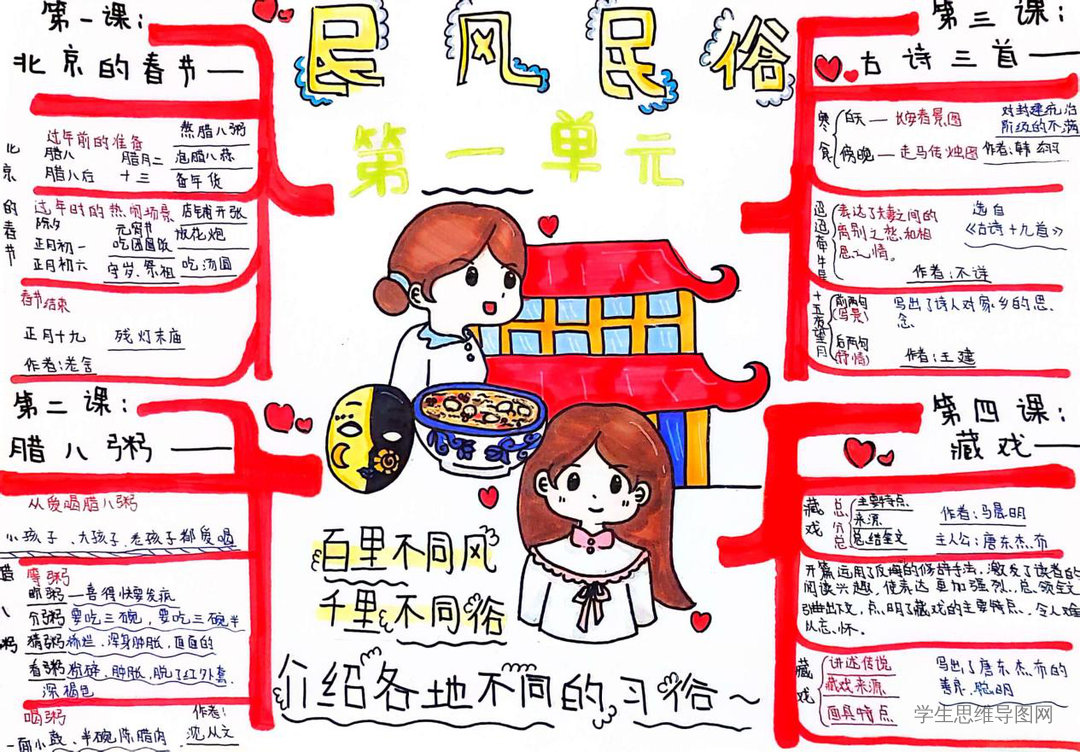 民风民俗
第一单元
第一课：
北京的春节一
北京的春节
过年前的准备 熬腊八粥
腊八 腊月二 泡腊八蒜
腊八后 十三 备年货
过年时的热闹场景 店铺开张
除夕 元宵节 放花炮
正月初一 吃团圆饭
正月初六 守岁、祭祖 吃汤圆
春节结束
正月十九 残灯末庙
作者：老舍
第二课：
腊八粥一
从爱喝腊八粥
小孩子、大孩子、老孩子都爱喝
腊八粥
等粥
盼粥一喜得快要发疯
分粥 要吃三碗，要吃三碗半
猜粥 稀烂、浑身肿胀、直直的
看粥
肿胀，脱了红外套
深褐色
喝粥 作者：
沈从文
第三课：
古诗三首一
寒食
白天一 暮春景图 对封建统治
阶级的不满
傍晚一走马传烛图 作者：韩翃
迢迢牵牛星
表达了夫妻之间的 选自
离别之愁和相 《古诗十九首》
思之情。
作者：不详
十五夜望月
前两句（写景） 写出了诗人对家乡的思
念
后两句（抒情） 作者：王建
第四课：
藏戏一
藏戏
总 主要特点
分 来源
总 总结全文
作者：马晨明
主人公：唐东杰布
开篇运用了反问的修辞手法，激发了读者的
阅读兴趣，使表达更加强烈、总领全文
引出下文，点明了藏戏的主要特点、令人难
以忘怀。
藏戏
讲述传说 写出了唐东杰布的
藏戏来源 善良、聪明
面具特点
百里不同风
千里不同俗
介绍各地不同的习俗~
学生思维导图网